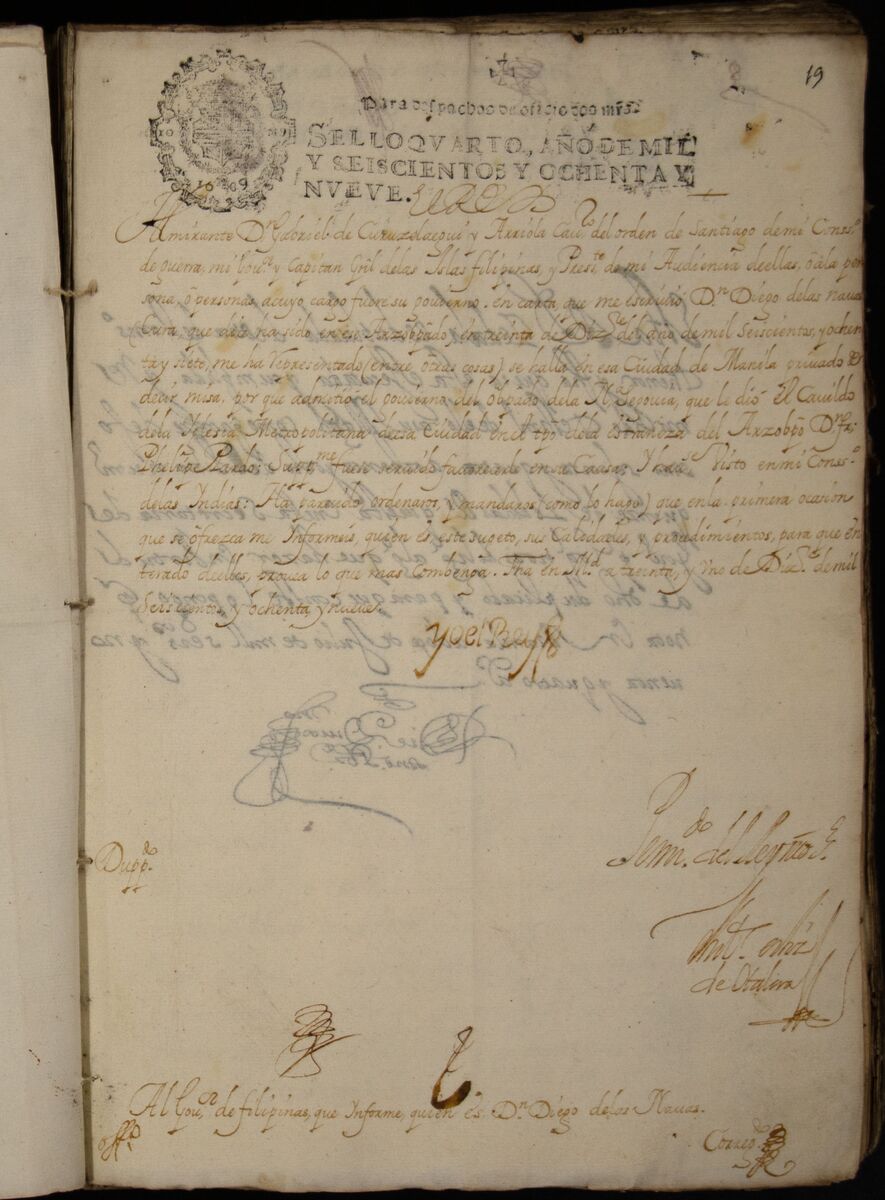 19
Para despachos de oficio dos mrs.
SELLO QVARTO, AÑO DE MIL
Y SEISCIENTOS Y OCHENTA Y
NVEVE.
1689
Almirante Dn. Gabriel de Curuzelaegui y Arriola Cauo. del orden de Santiago de mi Consso.
de guerra, mi Gouor. y Capitan Gral de las Islas filipinas, y Presite. de mi Audiencia de ellas, ô a la per
sona, ô personas a cuyo cargo fuere su gouierno. en carta, que me escriuió Dn. Diego de las nauas
Cura, que dice ha sido en ese Arzobpado, en treinta de Dize. del año de mil Seiscientos, y ochen
ta y siete, me ha Representado (entre otras cosas) se halla en esa Ciudad de Manila priuado de
decir misa, por que admitio el gouierno del Obpado de la Na. Segouia, que le dió El Cauildo
de la Iglesia Metropolitana de esa Ciudad en el tpo de la estrañeza del Arzobpo Dn. fr.
Phelipe Pardo: Supme. fuese seruido fauorecerle en su Causa; Y hause. Visto en mi Consso.
de las Indias: Ha parecido, ordenaros, y mandaros (como lo hago) que en la primera ocasion
que se ôfrezca me Informeis, quien es, este sugeto, sus Calidades, y procedimientos, para que en
terado de ellos, prouea lo que mas Combenga. fha en Md. a treinta, y Vno de Dize. de mil
Seiscientos, y ochenta, y nueue.
Yo el Rey
Duppdo.
de Otalora
Al Gouor. de filipinas, que Informe, quien es Dn. Diego de los Nauas.
offo.
Corregdo.